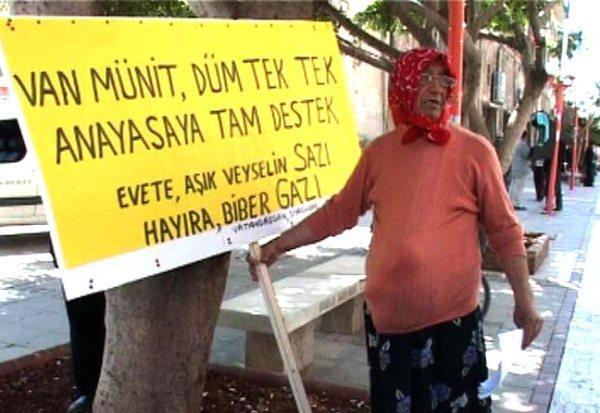 VAN MÜNİT, DÜM TEK TEK
ANAYASAYA TAM DESTEK
EVETE, AŞIK VEYSELİN SAZI
HAYIRA, BİBER GAZI